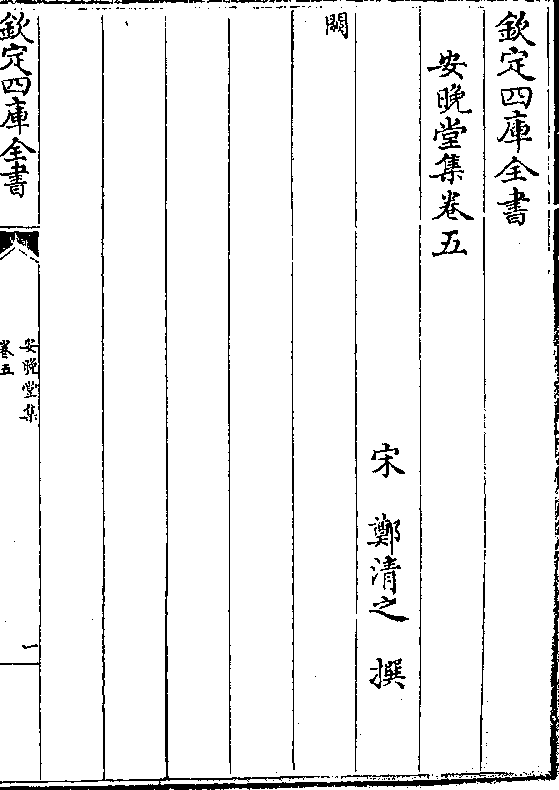 欽定四庫全書
安晚堂集卷五
宋　鄭清之　撰
闕
欽定四庫全書
安晚堂集
卷五
一